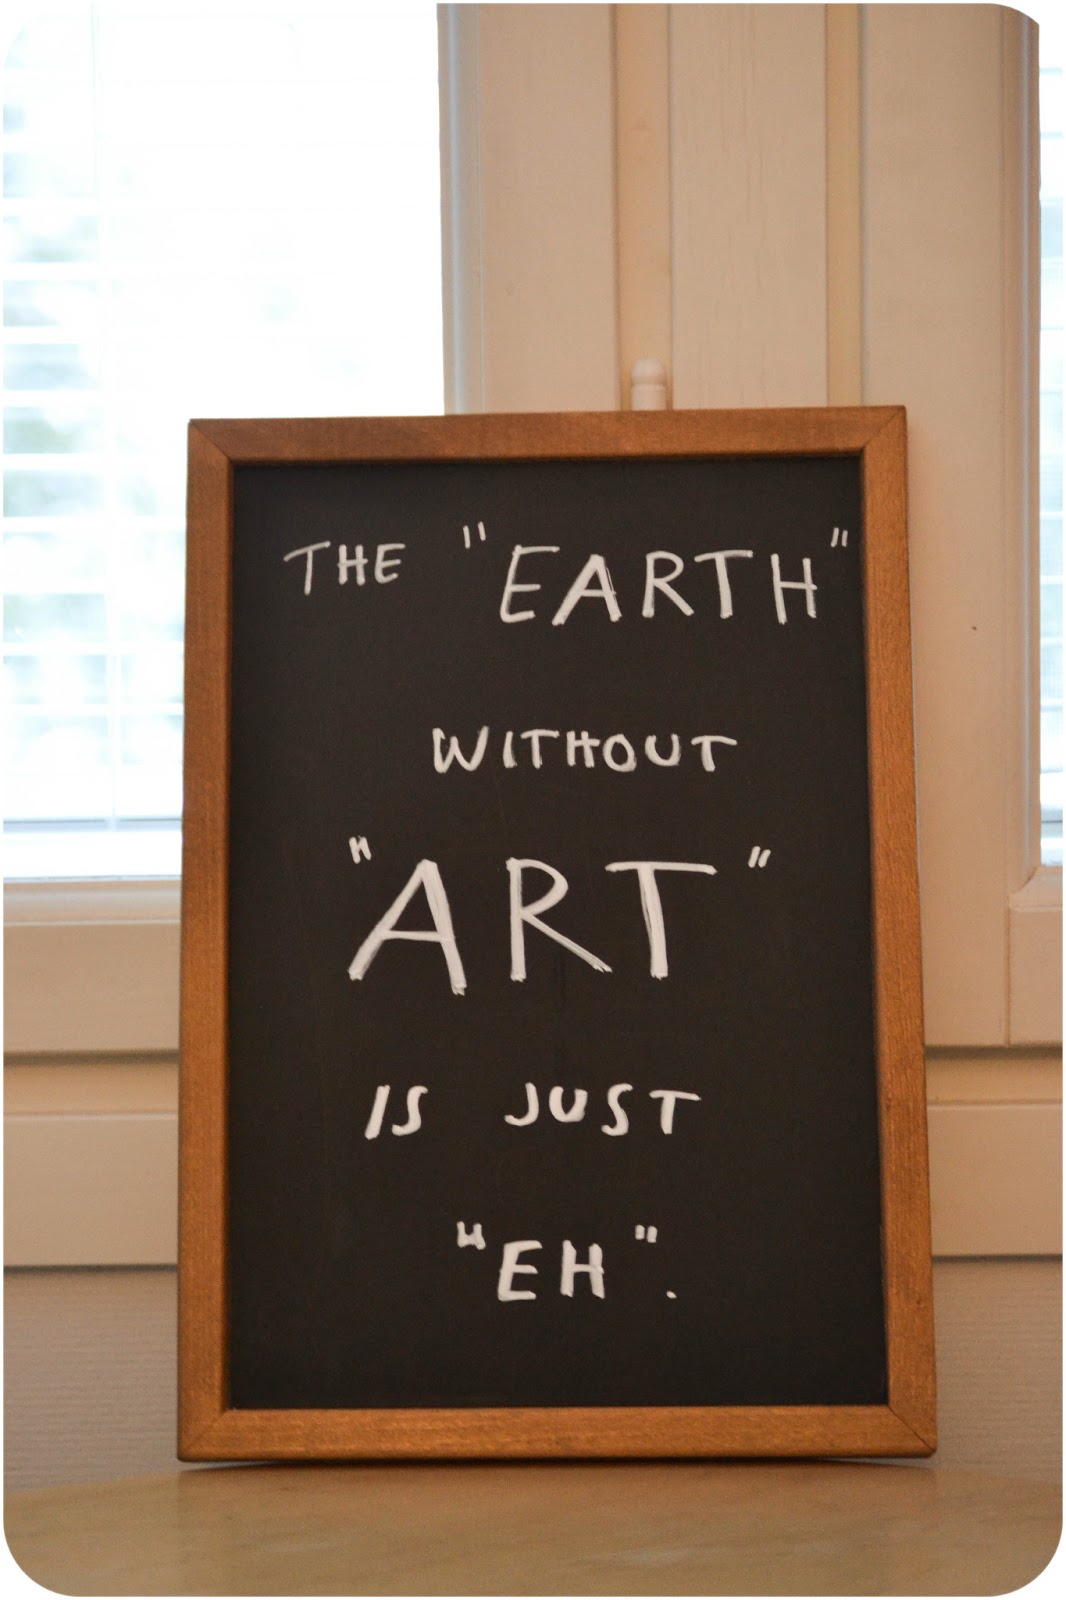 THE "EARTH"
WITHOUT
"ART"
IS JUST
"EH".